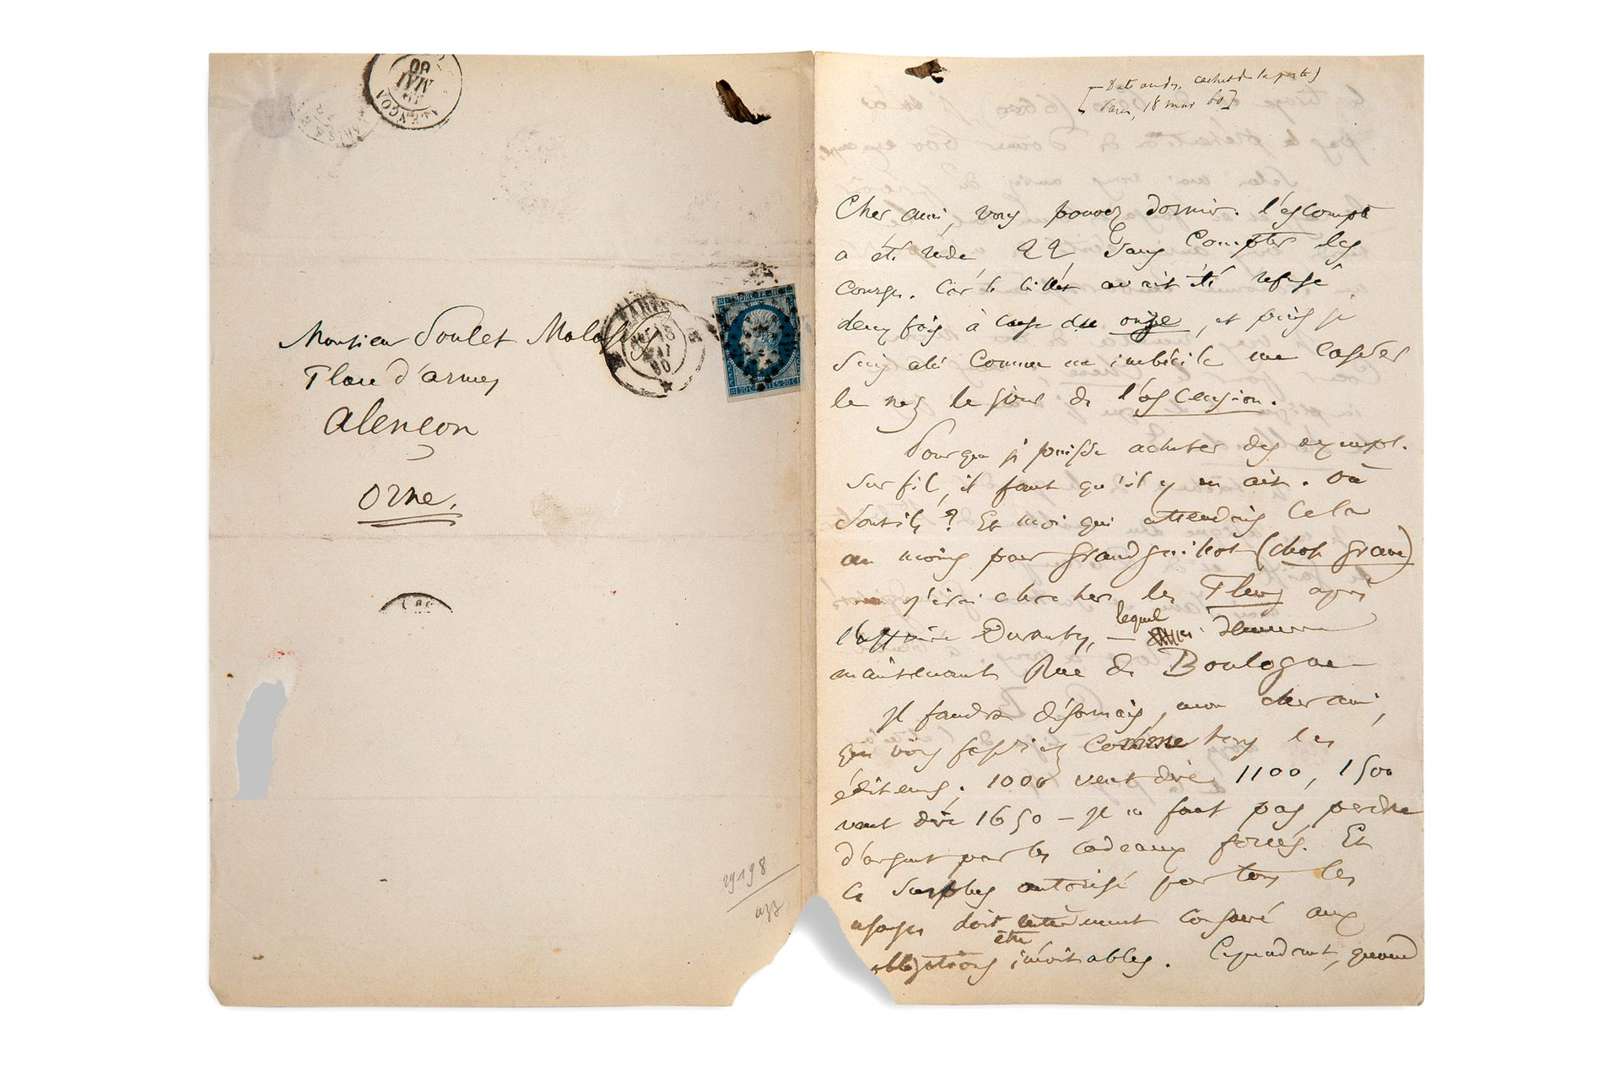 ALENÇON
MAI
60
Monsieur Poulet Malass
Place d'armes
Alençon
Orne.
PARIS
18
MAI
60
29198
Paris, 18 mai 60]
Cher ami, vous pouvez dormir. l'escompte
a été rude 22, sans compter les
courses. Car le billet avait été refusé
deux fois à cause du onze, et puis je
suis allé comme un imbécile me casser
le nez le jour de l'ascension.
Pour que je puisse acheter des exempl.
sur fil, il faut qu'il y en ait. Où
sont-ils ? Et moi qui attendais cela
au moins pour Grandguillot (chose grave)
j'irai chercher les Fleurs après
l'affaire Duranty, — lequel demeure
maintenant Rue de Boulogne
Il faudra désormais, mon cher ami,
que vous fassiez comme tous les
éditeurs. 1000 veut dire 1100, 1500
veut dire 1650 — Il ne faut pas perdre
d'argent par les cadeaux forcés. Et
ce surplus autorisé par tous les
usages doit être consacré aux
obligations inévitables. Cependant, quand